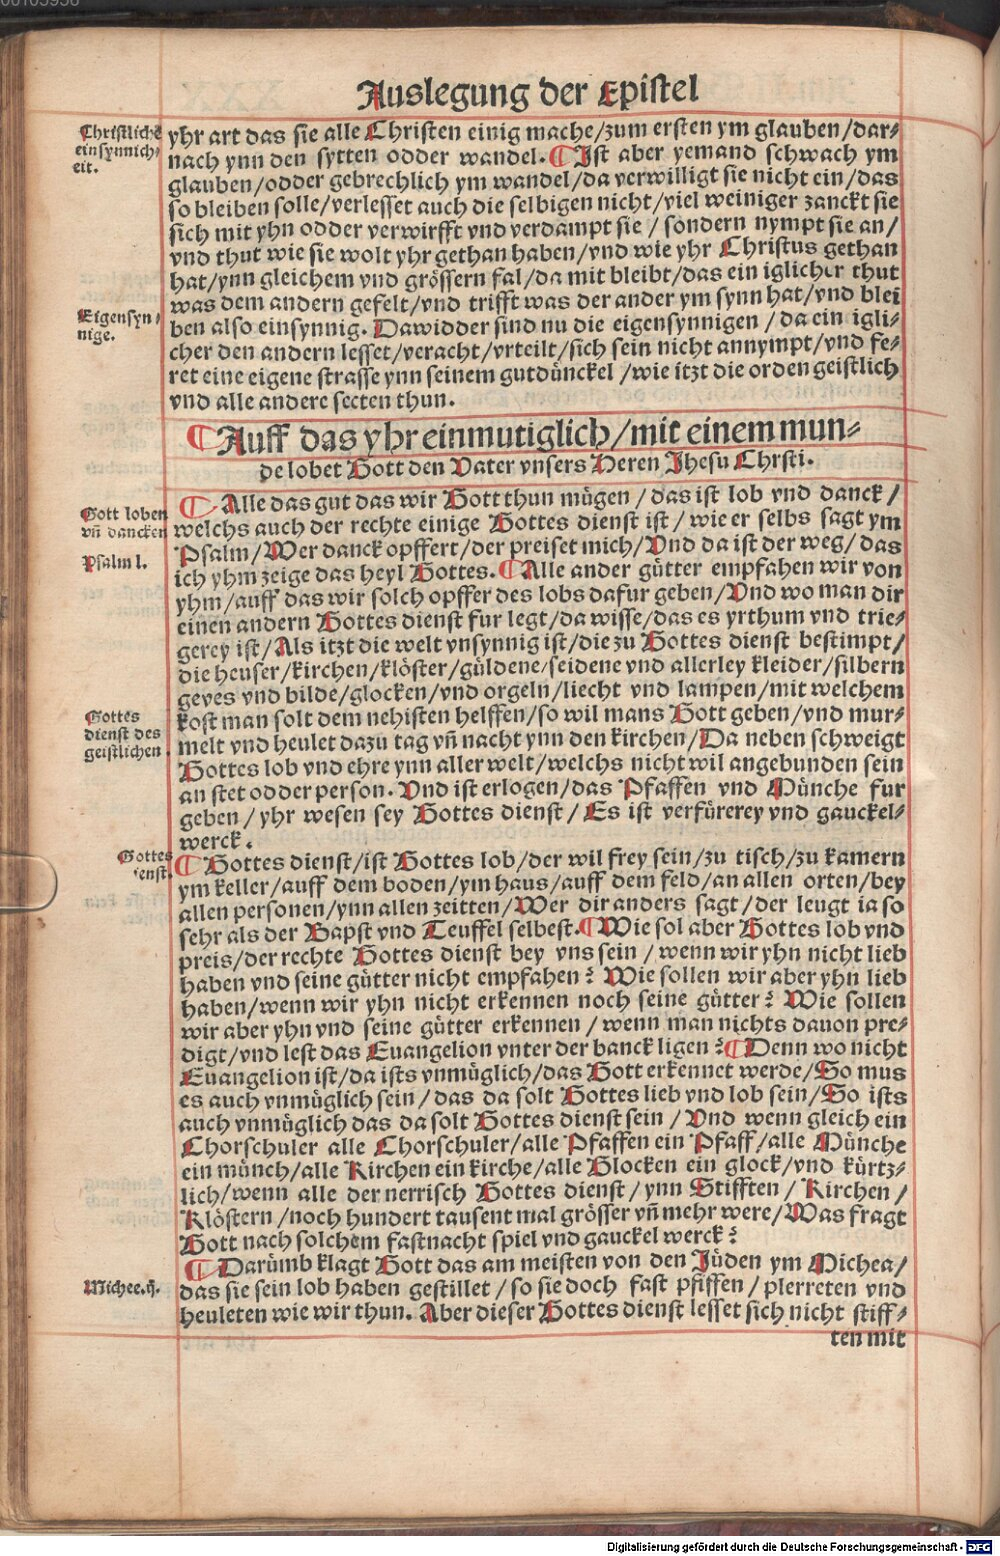 Auslegung der Epistel
Christliche
einsynnich-
eit.
yhr art das sie alle Christen einig mache/zum ersten ym glauben/dar-
nach ynn den sytten odder wandel. Ist aber yemand schwach ym
glauben/odder gebrechlich ym wandel/da verwilligt sie nicht ein/das
so bleiben solle/verlesset auch die selbigen nicht/viel weiniger zanckt sie
sich mit yhn odder verwirfft vnd verdampt sie/sondern nympt sie an/
vnd thut wie sie wolt yhr gethan haben/vnd wie yhr Christus gethan
hat/ynn gleichem vnd grössern fal/da mit bleibt/das ein iglicher thut
was dem andern gefelt/vnd trifft was der ander ym synn hat/vnd blei
Eigensyn-
nige.
ben also einsynnig. Dawidder sind nu die eigensynnigen/da ein igli-
cher den andern lesset/veracht/vrteilt/sich sein nicht annympt/vnd fe-
ret eine eigene strasse ynn seinem gutdünckel/wie itzt die orden geistlich
vnd alle andere secten thun.
Auff das yhr einmutiglich/mit einem mun-
de lobet Gott den Vater vnsers Heren Jhesu Chrsti.
Gott loben
vn̄ dancken
Psalm l.
Alle das gut das wir Gott thun mügen/das ist lob vnd danck/
welchs auch der rechte einige Gottes dienst ist/wie er selbs sagt ym
Psalm/Wer danck opffert/der preiset mich/Vnd da ist der weg/das
ich yhm zeige das heyl Gottes. Alle ander gütter empfahen wir von
yhm/auff das wir solch opffer des lobs dafur geben/Vnd wo man dir
einen andern Gottes dienst fur legt/da wisse/das es yrthum vnd trie-
gerey ist/Als itzt die welt vnsynnig ist/die zu Gottes dienst bestimpt/
die heuser/kirchen/klöster/güldene/seidene vnd allerley kleider/silbern
geves vnd bilde/glocken/vnd orgeln/liecht vnd lampen/mit welchem
Gottes
dienst des
geistlichen
kost man solt dem nehisten helffen/so wil mans Gott geben/vnd mur-
melt vnd heulet dazu tag vn̄ nacht ynn den kirchen/Da neben schweigt
Gottes lob vnd ehre ynn aller welt/welchs nicht wil angebunden sein
an stet odder person. Vnd ist erlogen/das Pfaffen vnd Münche fur
geben/yhr wesen sey Gottes dienst/Es ist verfürerey vnd gauckel-
werck.
Gottes
ienst
Gottes dienst/ist Gottes lob/der wil frey sein/zu tisch/zu kamern
ym keller/auff dem boden/ym haus/auff dem feld/an allen orten/bey
allen personen/ynn allen zeitten/Wer dir anders sagt/der leugt ia so
sehr als der Bapst vnd Teuffel selbest. Wie sol aber Gottes lob vnd
preis/der rechte Gottes dienst bey vns sein/wenn wir yhn nicht lieb
haben vnd seine gütter nicht empfahen? Wie sollen wir aber yhn lieb
haben/wenn wir yhn nicht erkennen noch seine gütter? Wie sollen
wir aber yhn vnd seine gütter erkennen/wenn man nichts dauon pre-
digt/vnd lest das Euangelion vnter der banck ligen? Denn wo nicht
Euangelion ist/da ists vnmüglich/das Gott erkennet werde/So mus
es auch vnmüglich sein/das da solt Gottes lieb vnd lob sein/So ists
auch vnmüglich das da solt Gottes dienst sein/Vnd wenn gleich ein
Chorschuler alle Chorschuler/alle Pfaffen ein Pfaff/alle Münche
ein münch/alle Kirchen ein kirche/alle Glocken ein glock/vnd kürtz-
lich/wenn alle der nerrisch Gottes dienst/ynn Stifften/Kirchen/
Klöstern/noch hundert tausent mal grösser vn̄ mehr were/Was fragt
Gott nach solchem fastnacht spiel vnd gauckel werck?
Michee.ij.
Darümb klagt Gott das am meisten von den Jüden ym Michea/
das sie sein lob haben gestillet/so sie doch fast pfiffen/plerreten vnd
heuleten wie wir thun. Aber dieser Gottes dienst lesset sich nicht stiff-
ten mit
Digitalisierung gefördert durch die Deutsche Forschungsgemeinschaft - DFG